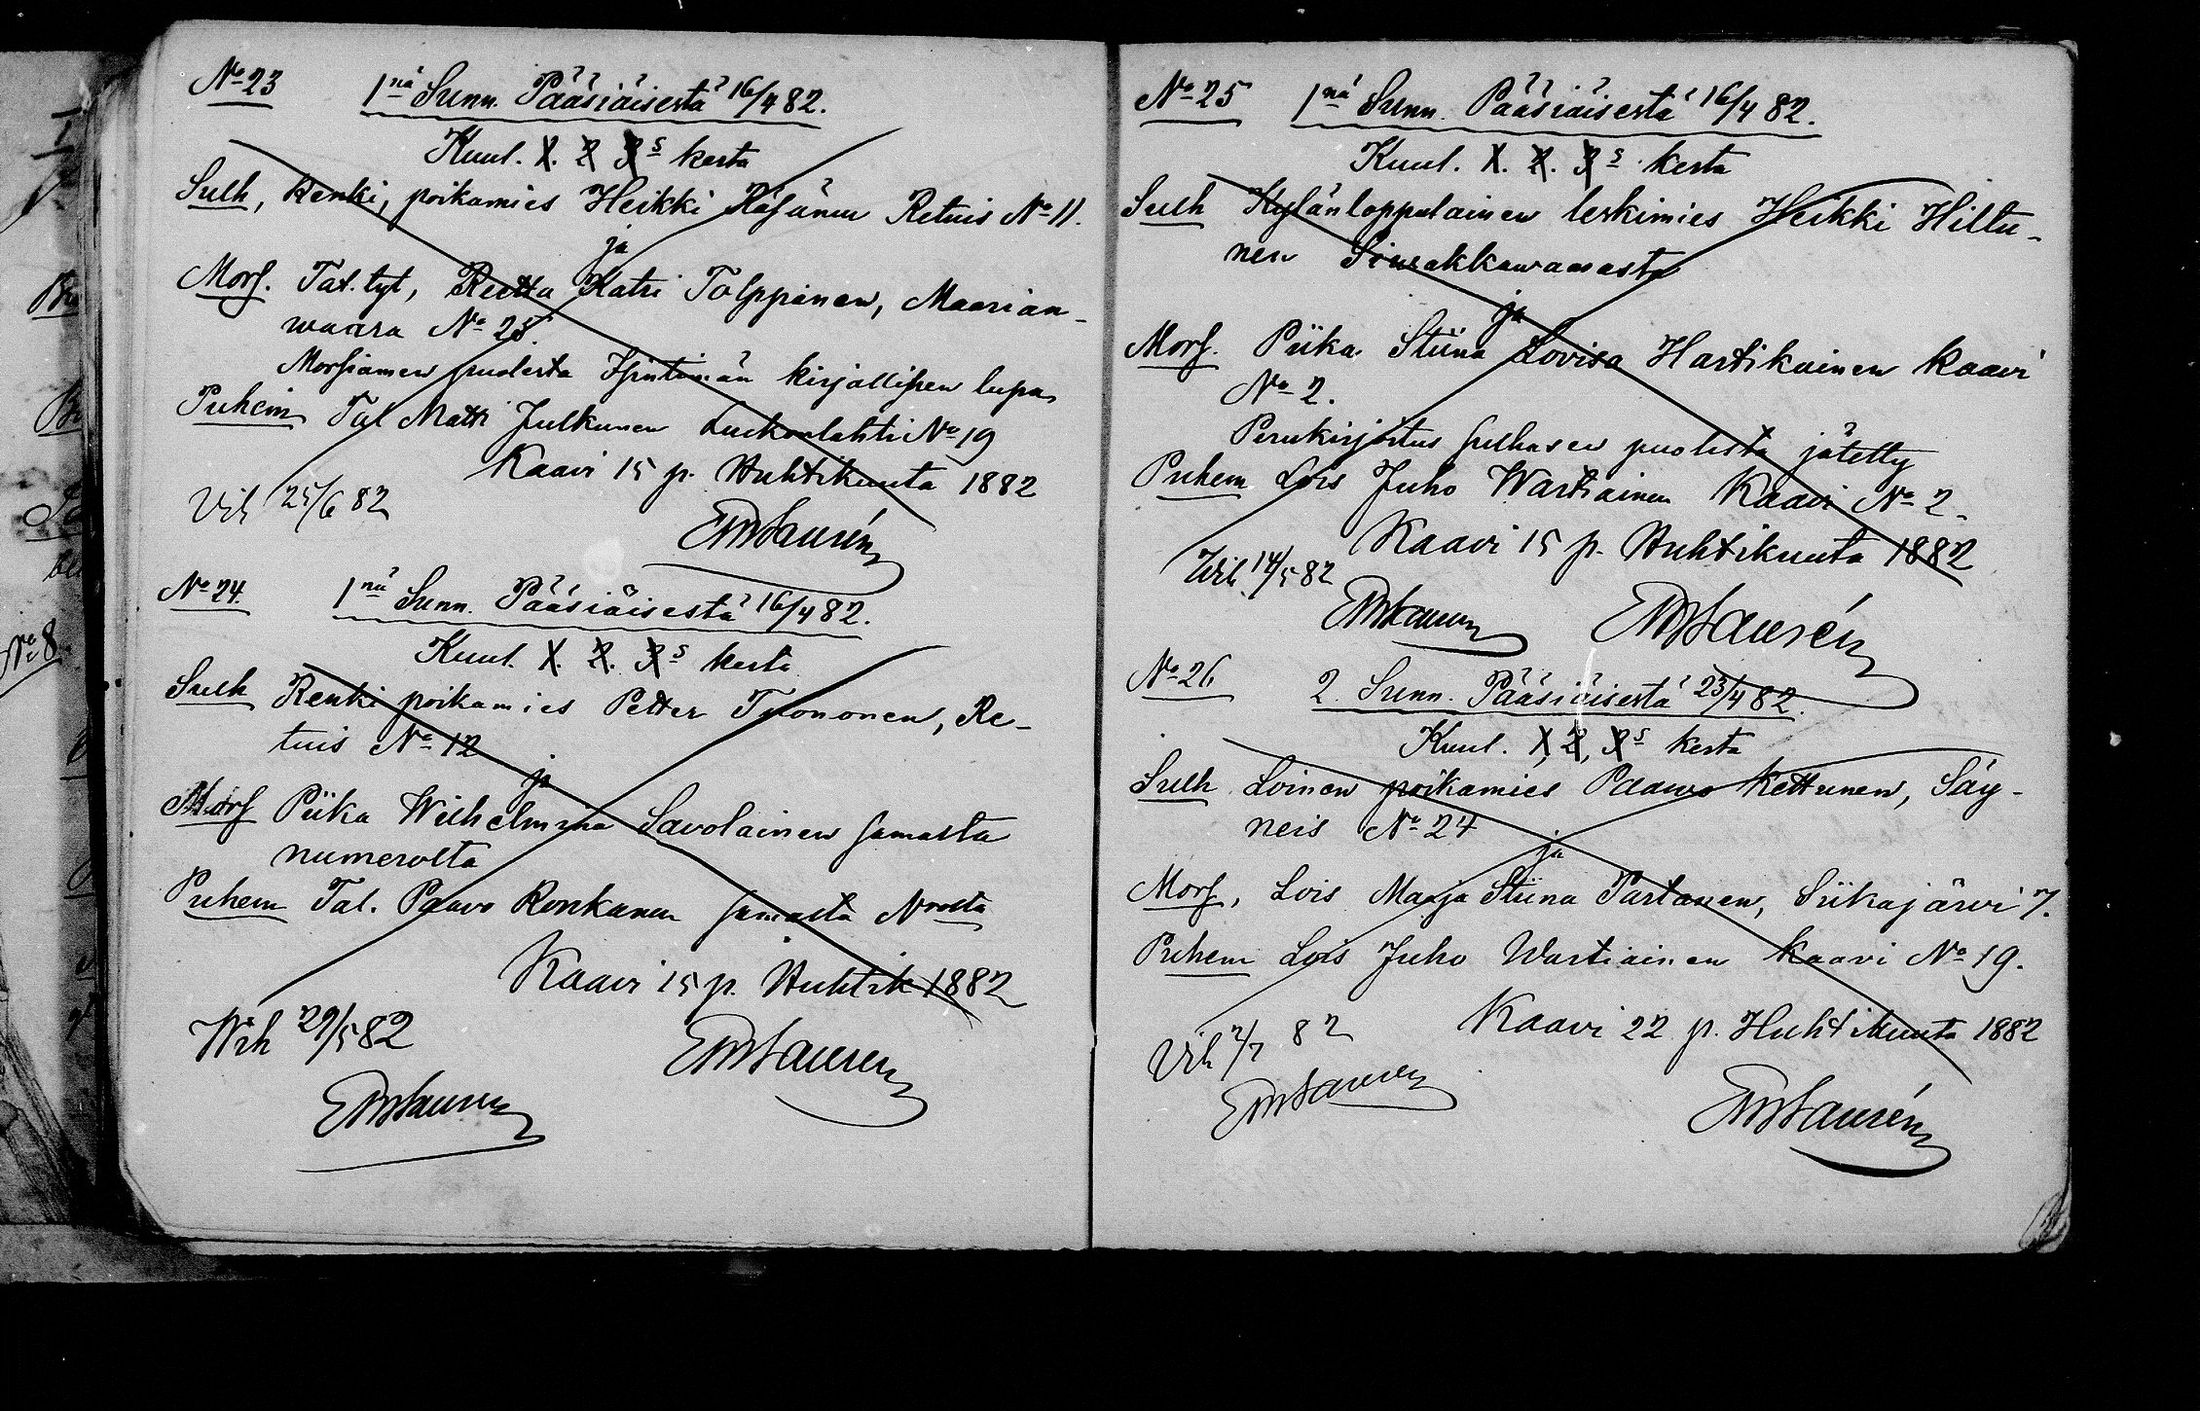 No 23 1nä Sunn. Pääsiäisestä 16/4 82.
Kuul. 1. 2. 3s kerta
Sulh, Renki, poikamies Heikki Räsänen Retuis No 11.
ja
Mors. Tal. tyt, Reetta Katri Tolppanen, Maarian-
waara No 25.
Morsiamen puolesta Isintimän kirjallisen lupa,
Puhem Tal Matti Julkunen Luikonlahti No 19
Kaavi 15 p. Huhtikuuta 1882
Vih 25/6 82
No 24. 1nä Sunn. Pääsiäisestä 16/4 82.
Kuul. 1. 2. 3s kerta
Sulh Renki poikamies Petter Tuononen, Re-
tuis No 12
ja
Mors Piika Wilhelmina Savolainen samasta
numerosta
Puhem Tal. Paavo Ronkanen samasta Nrosta
Kaavi 15 p. Huhtik 1882
Wih 29/5 82
No 25 1nä Sunn. Pääsiäisestä 16/4 82.
Kuul. 1. 2. 3s kerta
Sulh Kylänloppulainen leskimies Heikki Hiltu-
nen Siwakkawaarasta
ja
Mors. Piika Stiina Lovisa Hartikainen Kaavi
No 2.
Perukirjoitus sulhasen puolesta jätetty
Puhem Lois Juho Wartiainen Kaavi No 2.
Kaavi 15 p. Huhtikuuta 1882
Wih 14/5 82
No 26 2. Sunn. Pääsiäisestä 23/4 82.
Kuul. 1, 2, 3s kerta
Sulh Loinen poikamies Paawo Kettunen, Säy-
neis No 24
ja
Mors, Lois Maaja Stiina Partanen, Siikajärwi 7.
Puhem Lois Juho Wartiainen Kaavi No 19.
Kaavi 22 p. Huhtikuuta 1882
Vih 2/7 82